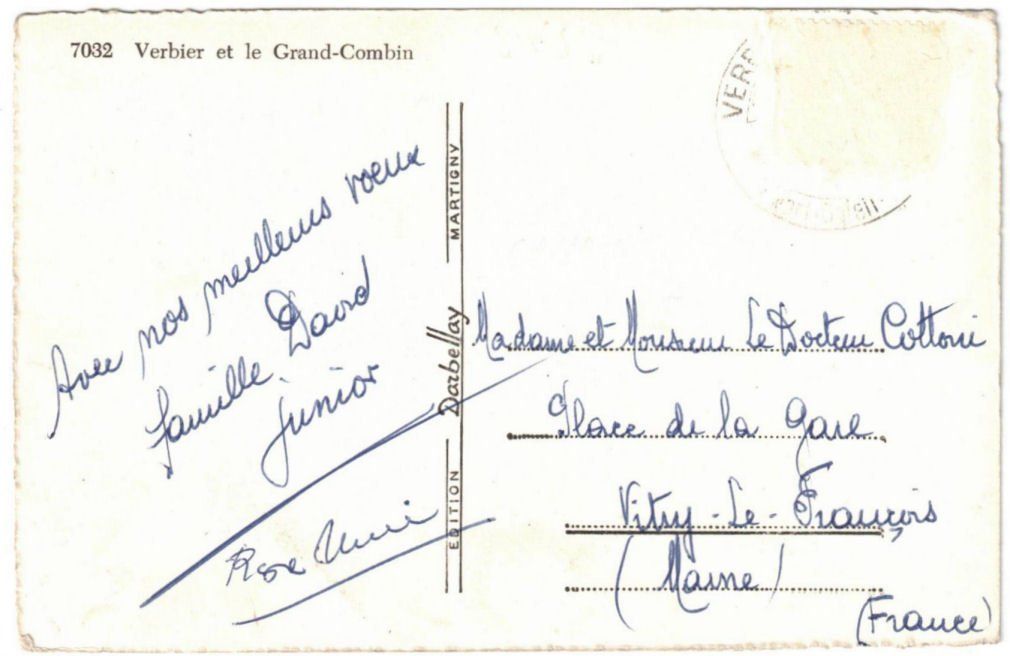 7032 Verbier et le Grand-Combin
VERB
Avec nos meilleurs vœux
famille David
Junior
EDITION Darbellay MARTIGNY
Madame et Monsieur Le Docteur Cottoni
Place de la Gare
Vitry-Le-François
(Marne)
(France)